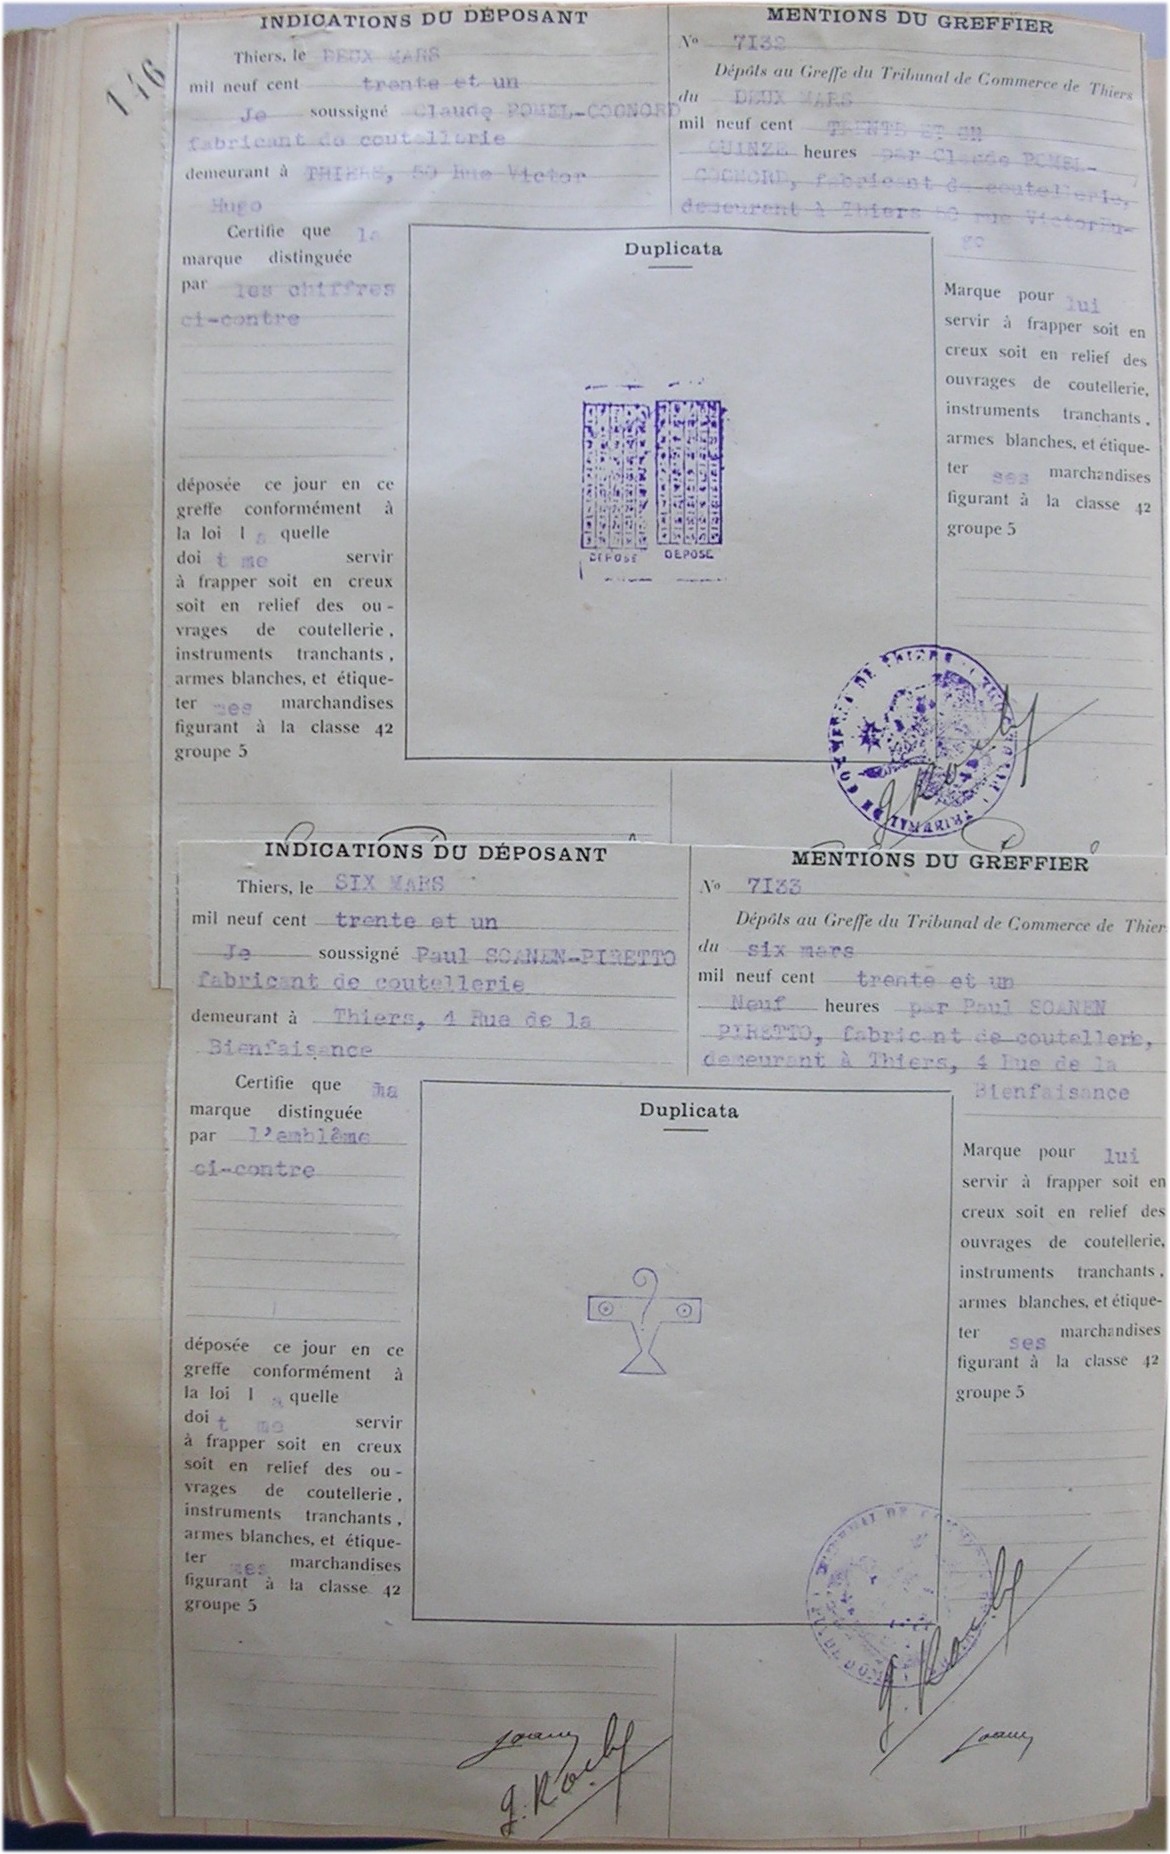 146
INDICATIONS DU DÉPOSANT
Thiers, le DEUX MARS
mil neuf cent trente et un
Je soussigné Claude POMEL-COGNORD
fabricant de coutellerie
demeurant à THIERS, 50 Rue Victor
Hugo
Certifie que la
marque distinguée
par les chiffres
ci-contre
déposée ce jour en ce
greffe conformément à
la loi l a quelle
doi t me servir
à frapper soit en creux
soit en relief des ou-
vrages de coutellerie,
instruments tranchants,
armes blanches, et étique-
ter mes marchandises
figurant à la classe 42
groupe 5
Duplicata
DEPOSE DEPOSE
MENTIONS DU GREFFIER
No 7132
Dépôts au Greffe du Tribunal de Commerce de Thiers
du DEUX MARS
mil neuf cent TRENTE ET UN
QUINZE heures par Claude POMEL-
COGNORD, fabricant de coutellerie,
demeurant à Thiers 50 rue VictorHu-
go
Marque pour lui
servir à frapper soit en
creux soit en relief des
ouvrages de coutellerie,
instruments tranchants,
armes blanches, et étique-
ter ses marchandises
figurant à la classe 42
groupe 5
INDICATIONS DU DÉPOSANT
Thiers, le SIX MARS
mil neuf cent trente et un
Je soussigné Paul SOANEN-PIRETTO
fabricant de coutellerie
demeurant à Thiers, 4 Rue de la
Bienfaisance
Certifie que ma
marque distinguée
par l'emblême
ci-contre
déposée ce jour en ce
greffe conformément à
la loi l a quelle
doi t me servir
à frapper soit en creux
soit en relief des ou-
vrages de coutellerie,
instruments tranchants,
armes blanches, et étique-
ter mes marchandises
figurant à la classe 42
groupe 5
Duplicata
MENTIONS DU GREFFIER
No 7133
Dépôts au Greffe du Tribunal de Commerce de Thier
du six mars
mil neuf cent trente et un
Neuf heures par Paul SOANEN
PIRETTO, fabricant de coutellerie,
demeurant à Thiers, 4 Rue de la
Bienfaisance
Marque pour lui
servir à frapper soit en
creux soit en relief des
ouvrages de coutellerie,
instruments tranchants,
armes blanches, et étique-
ter ses marchandises
figurant à la classe 42
groupe 5